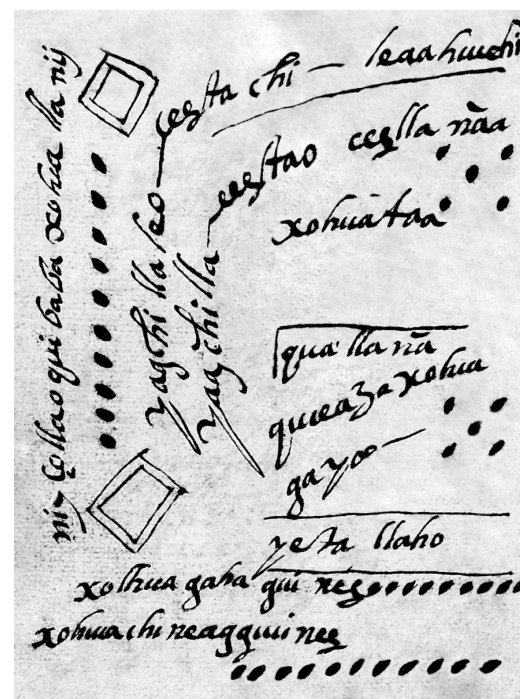 nij collao qui baba xohua lla nij
yagchi lla leo
yagchilla
cesta chi – leaahuichi
ceestao ceella nāa
xohuataa
qua lla nā
quieaza xohua
gayo –
yeta llaho
xolhua gaha qui nee
xohuachi neagquinee